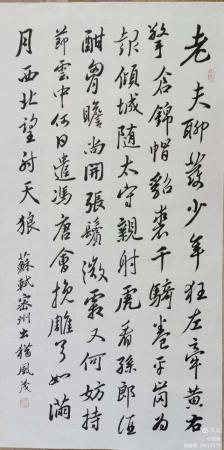 老夫聊發少年狂左牽黃右
擎倉錦帽貂裘千騎卷平崗為
報傾城隨太守親射虎看孫郎酒
酣胷瞻尚開張鬢微霜又何妨持
節雲中何日遣馮唐會挽雕弓如滿
月西北望射天狼
蘇軾密州出獵風茂